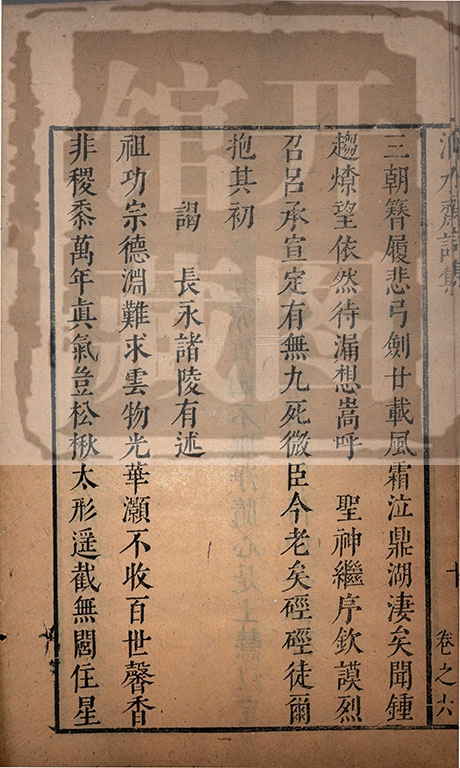 三朝簪履悲弓劍廿載風霜泣鼎湖淒矣聞鍾
趨燎望依然待漏想嵩呼　聖神繼序欽謨烈
召呂承宣定有無九死微臣今老矣硜硜徒爾
抱其初
謁　長永諸陵有述
祖功宗德淵難求雲物光華灝不收百世馨香
非稷黍萬年真氣豈松楸太形遥截無閭住星
卷之六